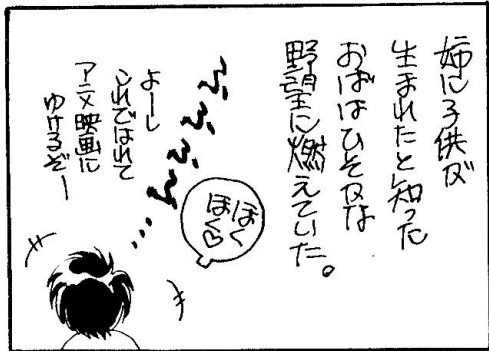 姉に子供が
生まれたと知った
おばはひそかな
野望に燃えていた。
ほく
ほく♡
よーし
これではれて
アニメ映画に
ゆけるぞー